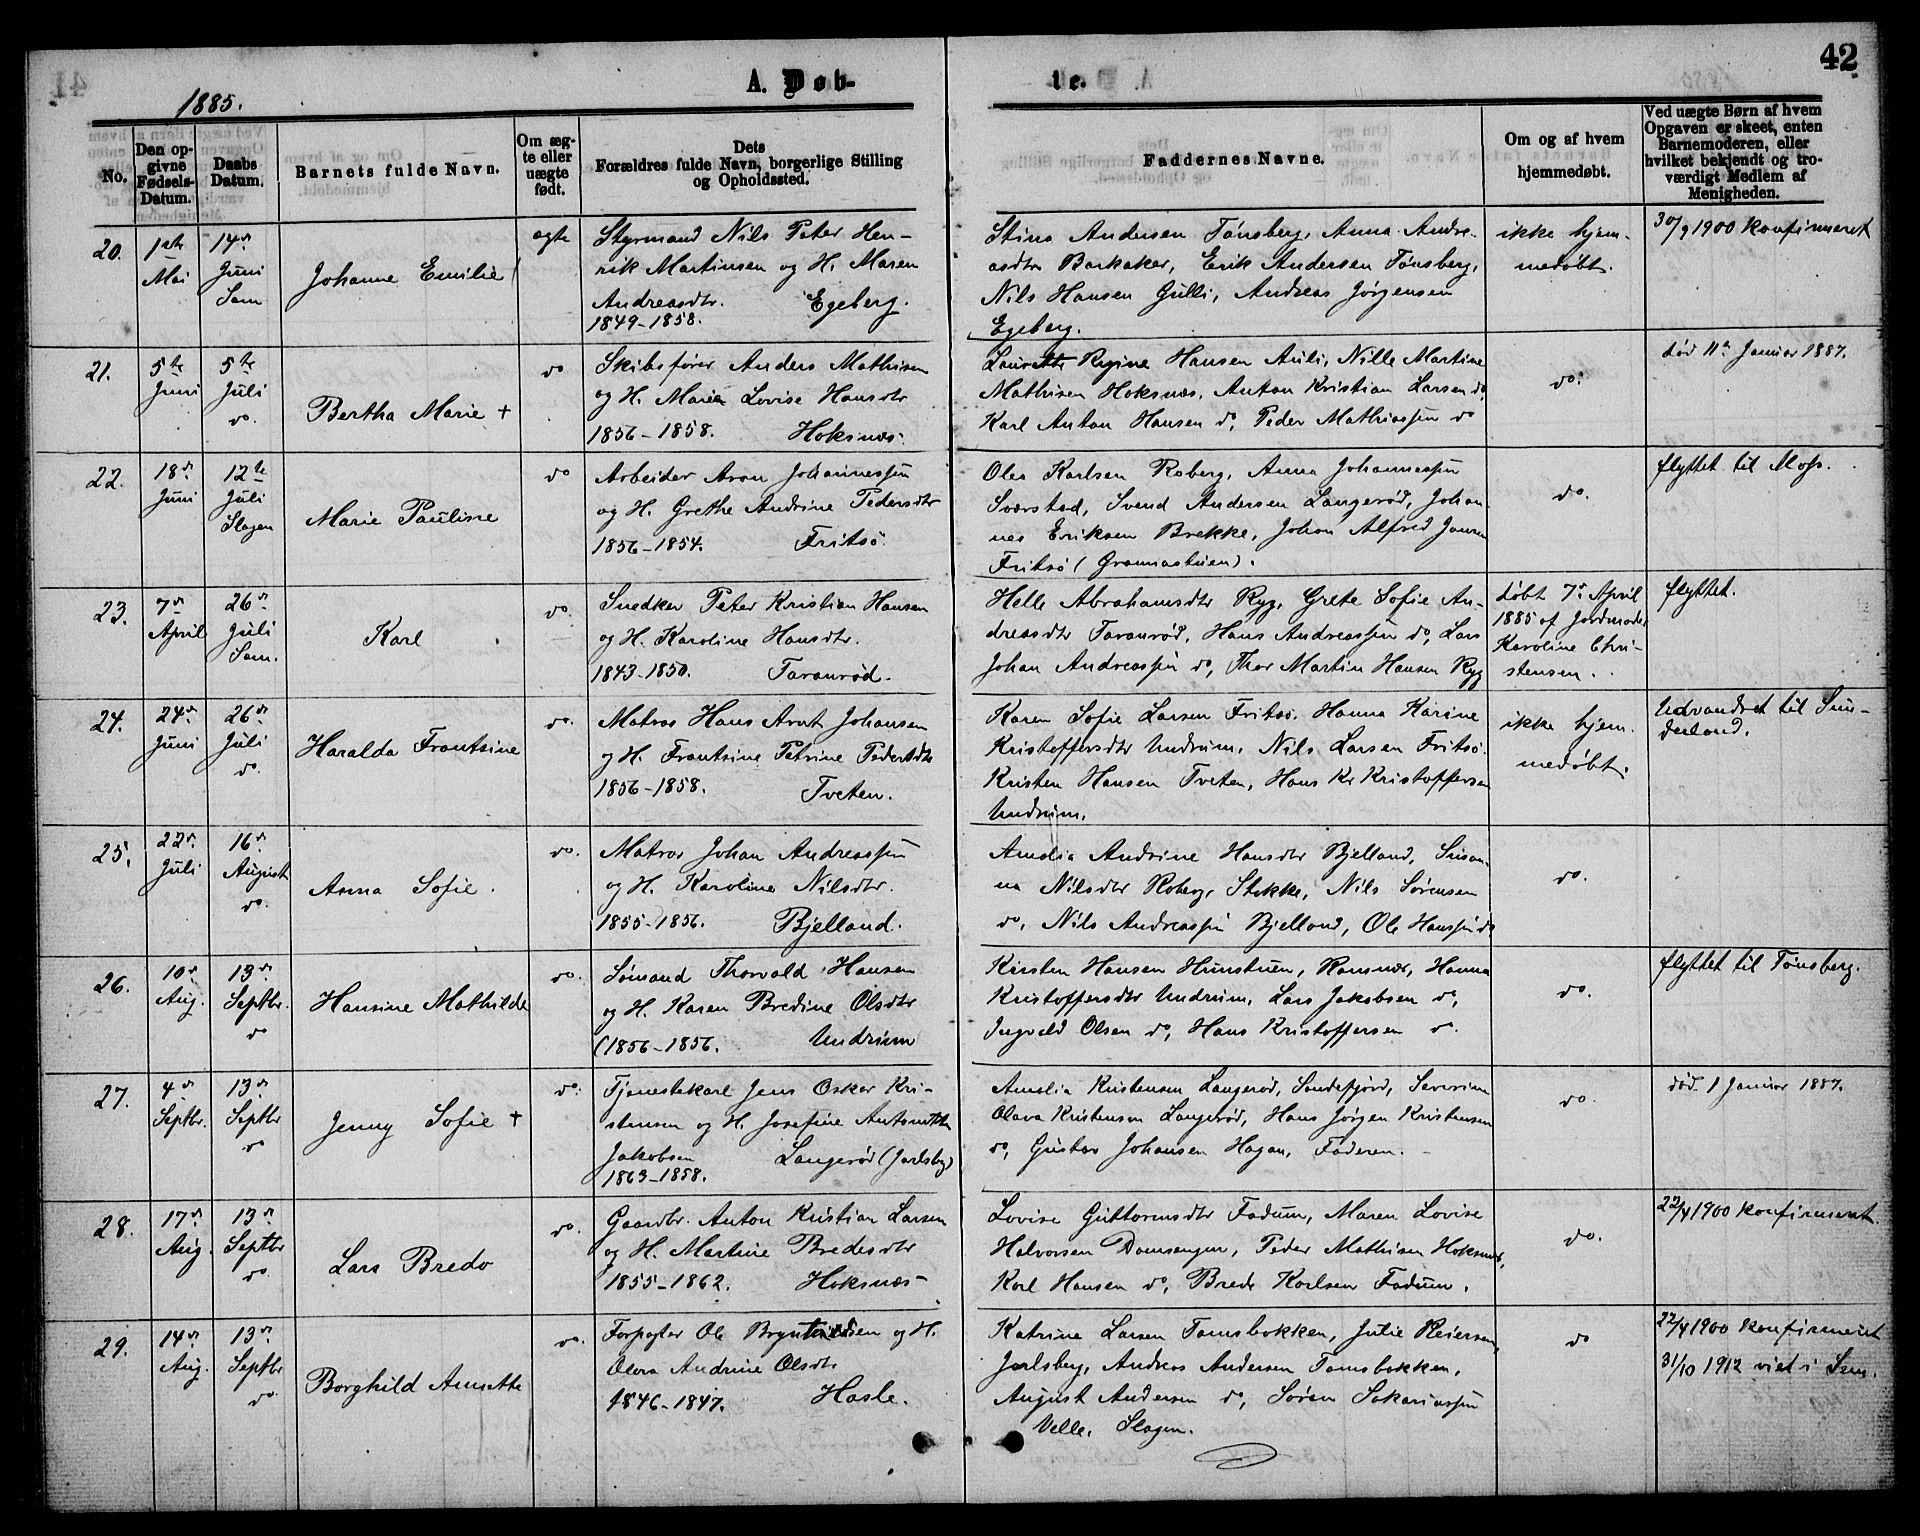 42
1885.
A. Døb-
te.
No.
Den op-
givne
Fødsels-
Datum.
Daabs
Datum.
Barnets fulde Navn.
Om æg-
te eller
uægte
født.
Dets
Forældres fulde Navn, borgerlige Stilling
og Opholdssted.
Faddernes Navne.
Om og af hvem
hjemmedøbt.
Ved uægte Børn af hvem
Opgaven er skeet, enten
Barnemoderen, eller
hvilket bekjendt og tro-
værdigt Medlem af
Menigheden.
20.
1ste
Mai
14de
Juni
Sem
Johanne Emilie
ægte
Styrmand Nils Peter Hen-
rik Martinsen og H. Maren
Andreasdtr. Egeberg.
1849-1858.
Stina Andersen Tønsberg, Anna Andre-
asdtr Barkaker, Erik Andersen Tønsberg,
Nils Hansen Gulli, Andreas Jørgensen
Egeberg.
ikke hjem-
medøbt.
30/9 1900 konfirmeret
21.
5te
Juni
5te
Juli
do.
Bertha Marie +
do
Skibsfører Anders Mathisen
og H. Maria Lovise Hansdtr
1856-1858. Hoksnæs.
Regine Hansen Auli, Nille Martine
Mathisen Hoksnæs, Anton Kristian Larsen do,
Karl Anton Hansen do, Peder Mathiassen do
do.
død 11te Januar 1887.
22.
18de
Juni
12te
Juli
Slagen
Marie Pauline
do
Arbeider Aron Johannessen
og H. Grethe Andrine Pedersdtr
1856-1854. Fritsø.
Olea Karlsen Roberg, Anna Johannessen
Sværstad, Svend Andersen Langerød, Johan-
nes Eriksen Brekke, Johan Alfred Jansen
Fritsø
do.
flyttet til Moss.
23.
7de
April
26de
Juli
Sem.
Karl
do.
Snedker Peter Kristian Hansen
og H. Karoline Hansdtr.
1843-1850. Taranrød.
Helle Abrahamsdtr Ryg, Grete Sofie An-
dreasdtr Taranrød, Hans Andreassen do, Lars
Johan Andreassen do, Thor Martin Hansen Ryg
døbt 7de April
1885 af Jordmoder
Karoline Chri-
stensen.
flyttet.
24.
24de
Juni
26de
Juli
do.
Haralda Frantsine
do.
Matros Hans Arnt Johansen
og H. Frantsine Petrine Pedersdtr
1856-1858. Tveten.
Karen Sofie Larsen Fritsø, Hanna Karine
Kristoffersdtr Undrum, Nils Larsen Fritsø.
Kristen Hansen Tveten, Hans Kr Kristoffersen
Undrum.
ikke hjem-
medøbt.
Udvandret til Sun-
derland.
25.
22de
Juli
16de
August
do.
Anna Sofie.
do.
Matros Johan Andreassen
og H. Karoline Nilsdtr.
1855-1856. Bjelland.
Amalia Andrine Hansdtr Bjelland, Susan-
na Nilsdtr Roberg, Stokke, Nils Sørensen
do, Nils Andreassen Bjelland, Ole Hanssen do
do.
26.
10de
Aug.
13de
Septbr.
do
Hansine Mathilde
do.
Sømand Thorvald Hansen
og H. Karen Bredine Olsdtr
(1856-1856. Undrum
Kirsten Hansen Hunstuen, Ramnæs, Hanna
Kristoffersdtr Undrum, Lars Jakobsen do,
Ingvald Olsen do, Hans Kristoffersen do.
do.
flyttet til Tønsberg.
27.
4de
Septbr.
13de
Septbr
do
Jenny Sofie +
do.
Tjenestekarl Jens Oskar Kri-
stensen og H. Josefine Antonette
Jakobsen Langerød (Jarlsbg)
1863-1858.
Amalia Kristensen Langerød, Sandefjord, Severine
Olava Kristensen Langerød, Hans Jørgen Kristensen
do, Gustav Johansen Hagan, Faderen.
do.
død. 1 Januar 1887.
28.
17de
Aug.
13de
Septbr
do.
Lars Bredo
do.
Gaardbr. Anton Kristian Larsen
og H. Martine Bredesdtr
1855-1862. Hoksnæs
Lovise Guttormsdtr Fadum, Maren Lovise
Halvorsen Damsengen, Peder Mathisen Hoksnæs,
Karl Hansen do, Brede Karlsen Fadum.
do.
22/4 1900 konfirmeret.
29.
14de
Aug.
13de
Septbr
do.
Borghild Annette
do.
Forpagter Ole Bryntildsen og H.
Olava Andrine Olsdtr
1846-1847. Hasle.
Katrine Larsen Tamsbakken, Julie Reiersen
Jarlsberg, Andreas Andersen Tamsbakken,
August Andersen do, Søren Sakariassen
Velle, Slagen.
do
22/4 1900 konfirmeret
31/10 1912 viet i Sem.